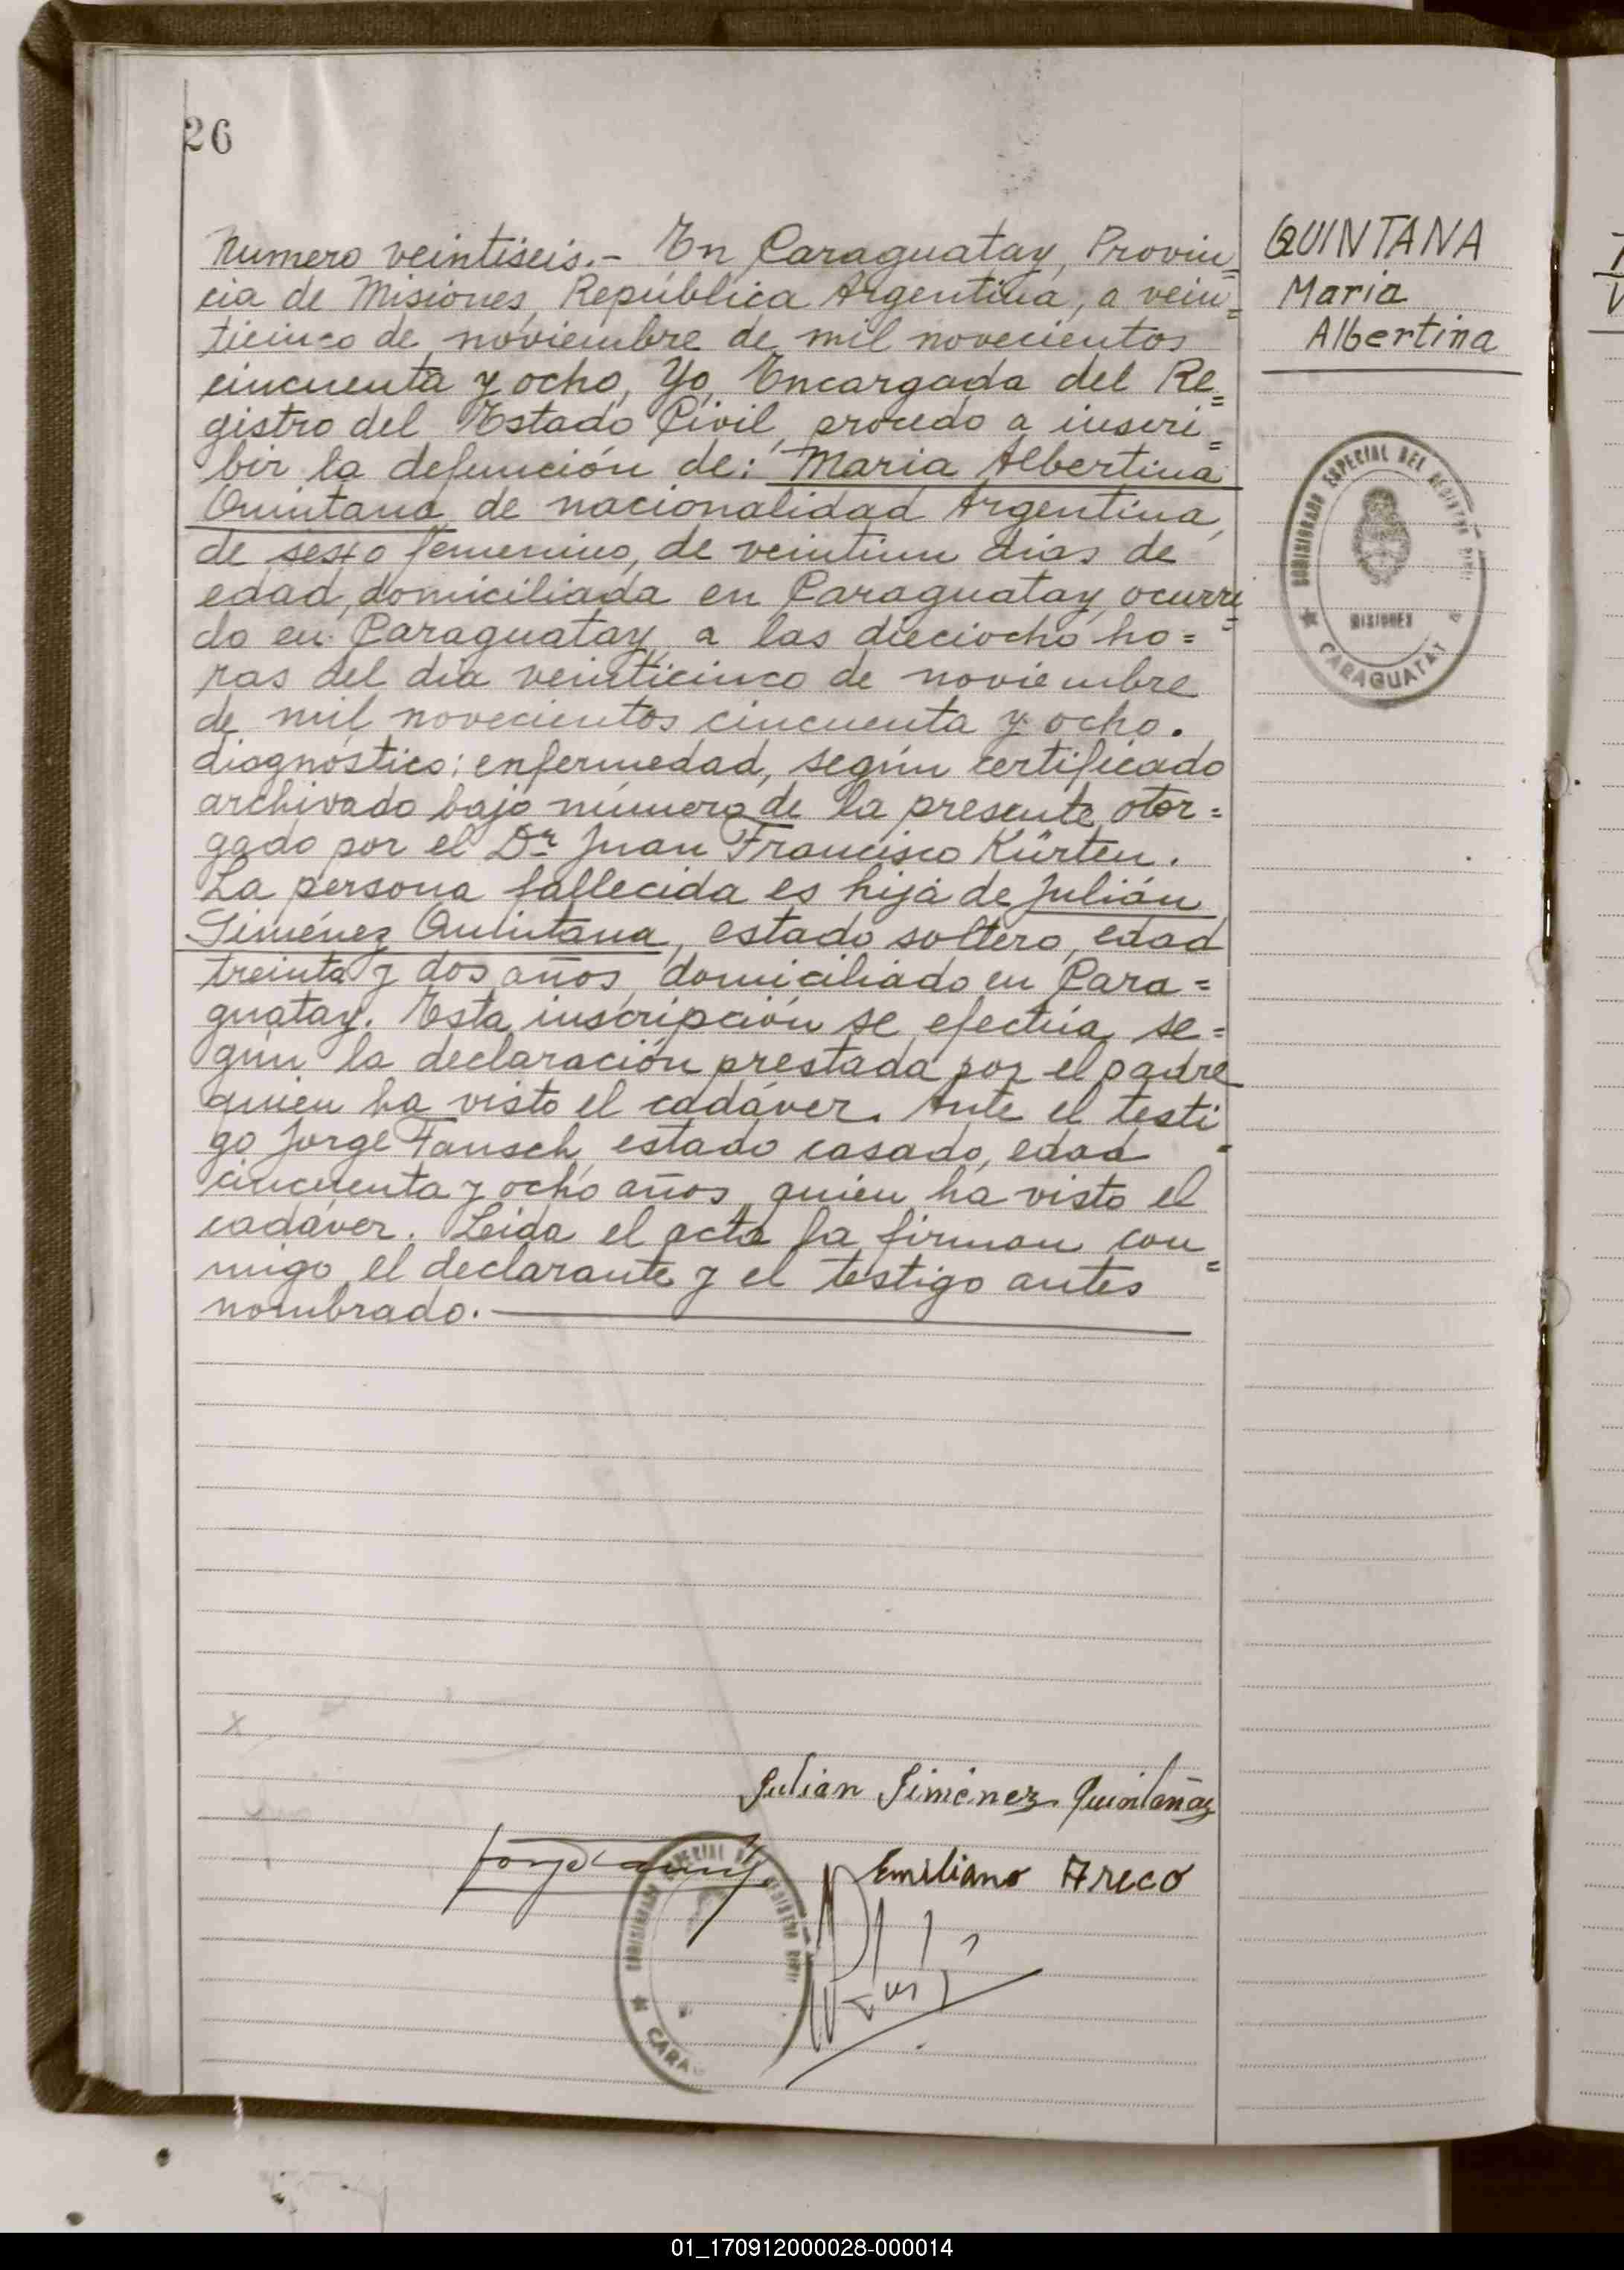 26
Numero veintiseis.- En Caraguatay, Provin=
cia de Misiones, República Argentina, a vein=
ticinco de noviembre de mil novecientos
cincuenta y ocho, Yo, Encargada del Re=
gistro del Estado Civil, procedo a inscri=
bir la defunción de: Maria Albertina
Quintana de nacionalidad Argentina,
de sexo femenino, de veintiun dias de
edad, domiciliada en Caraguatay, ocurri=
do en Caraguatay, a las dieciocho ho=
ras del dia veinticinco de noviembre
de mil novecientos cincuenta y ocho.
diagnóstico: enfermedad, según certificado
archivado bajo número de la presente, otor=
gado por el Dr Juan Francisco Kürten.
La persona fallecida es hija de Julián
Giménez Quintana, estado soltero, edad
treinta y dos años, domiciliado en Cara=
guatay. Esta inscripción se efectúa se=
gún la declaración prestada por el padre
quien ha visto el cadáver. Ante el testi=
go Jorge Tausch, estado casado, edad
cincuenta y ocho años, quien ha visto el
cadáver. Leida el acta la firman con=
migo, el declarante y el testigo antes
nombrado.
QUINTANA
Maria
Albertina
ESPECIAL DEL REGISTRO CIVIL
MISIONES
CARAGUATAY
Julian Jiménez
Emiliano Areco
ESPECIAL DEL REGISTRO CIVIL
CARAG
01_170912000028-000014